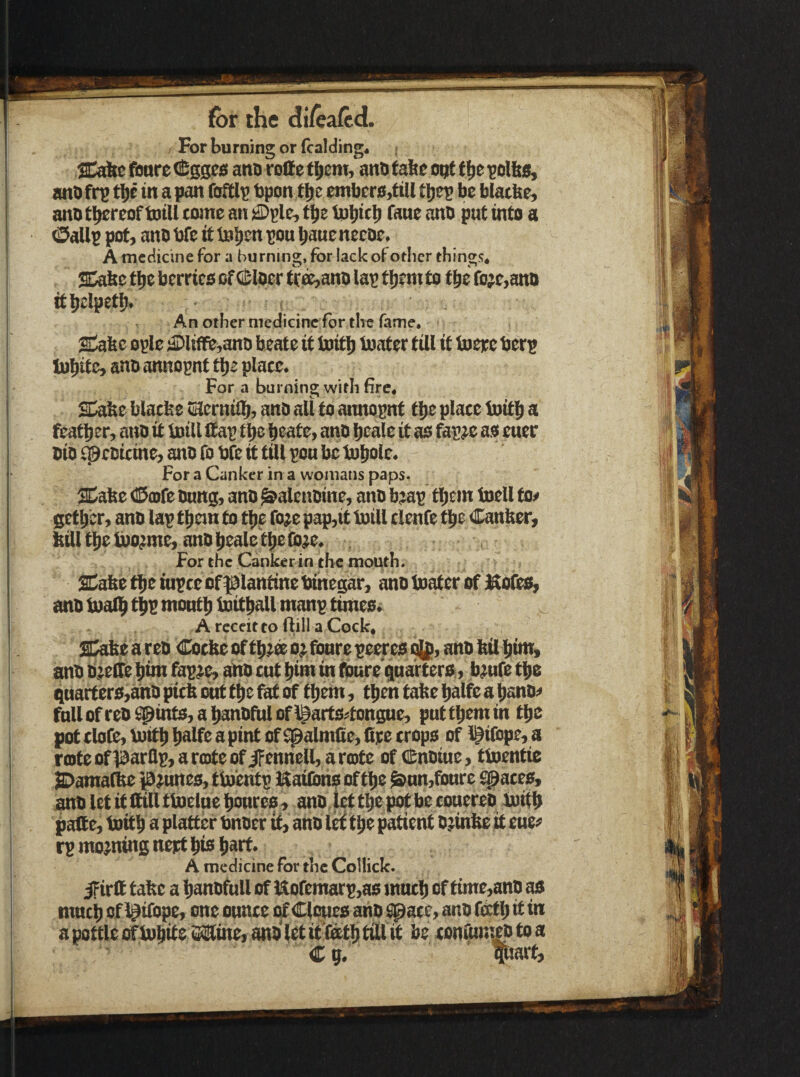 for the diſeaſed.
For burning or ſcalding.
Take foure Egges and roſte them, and take out the yolkes,
and fry thē in a pan ſoftly vpon the embers, till they be blacke,
and thereof will come an Oyle, the which ſaue and put into a
Gally pot, and vſe it when you haue neede.
A medicine for a burning, for lack of other things.
Take the berries of Elder trée, and lay them to the ſoꝛe, and
it helpeth.
An other medicine for the ſame.
Take oyle Oliffe, and beate it with water till it were very
white, and annoynt the place.
For a burning with fire.
Take blacke Verniſh, and all to annoynt the place with a
feather, and it will ſtay the heate, and heale it as fayꝛe as euer
did Medicine, and ſo vſe it till you be whole.
For a Canker in a womans paps.
Take Gooſe dung, and Salendine, and bꝛay them well to-
gether, and lay them to the ſoꝛe pap, it will clenſe the Canker,
kill the woꝛme, and heale the ſoꝛe.
For the Canker in the mouth.
Take the iuyce of Plantine vinegar, and water of Roſes,
and waſh thy mouth withall many times.
A receit to ſtill a Cock,
Take a red Cocke of thꝛée oꝛ foure yeeres old, and kil him,
and dꝛeſſe him fayꝛe, and cut him in foure quarters, bꝛuſe the
quarters, and pick out the fat of them, then take halfe a hand-
full of red Mints, a handful of Harts-tongue, put them in the
pot cloſe, with halfe a pint of Malmſie, ſixe crops of Hiſope, a
roote of Parſly, a roote of Fennell, a roote of Endiue, twentie
Damaſke Pꝛunes, twenty Raiſons of the Sun, foure Maces,
and let it ſtill twelue houres, and let the pot be couered with
paſte, with a platter vnder it, and let the patient dꝛinke it eue-
ry moꝛning next his hart.
A medicine for the Collick.
Firſt take a handfull of Roſemary, as much of time, and as
much of Hiſope, one ounce of Cloues and Mace, and ſéeth it in
a pottle of white Wine, and let it ſéeth till it be conſumed to a
C ij. quart,